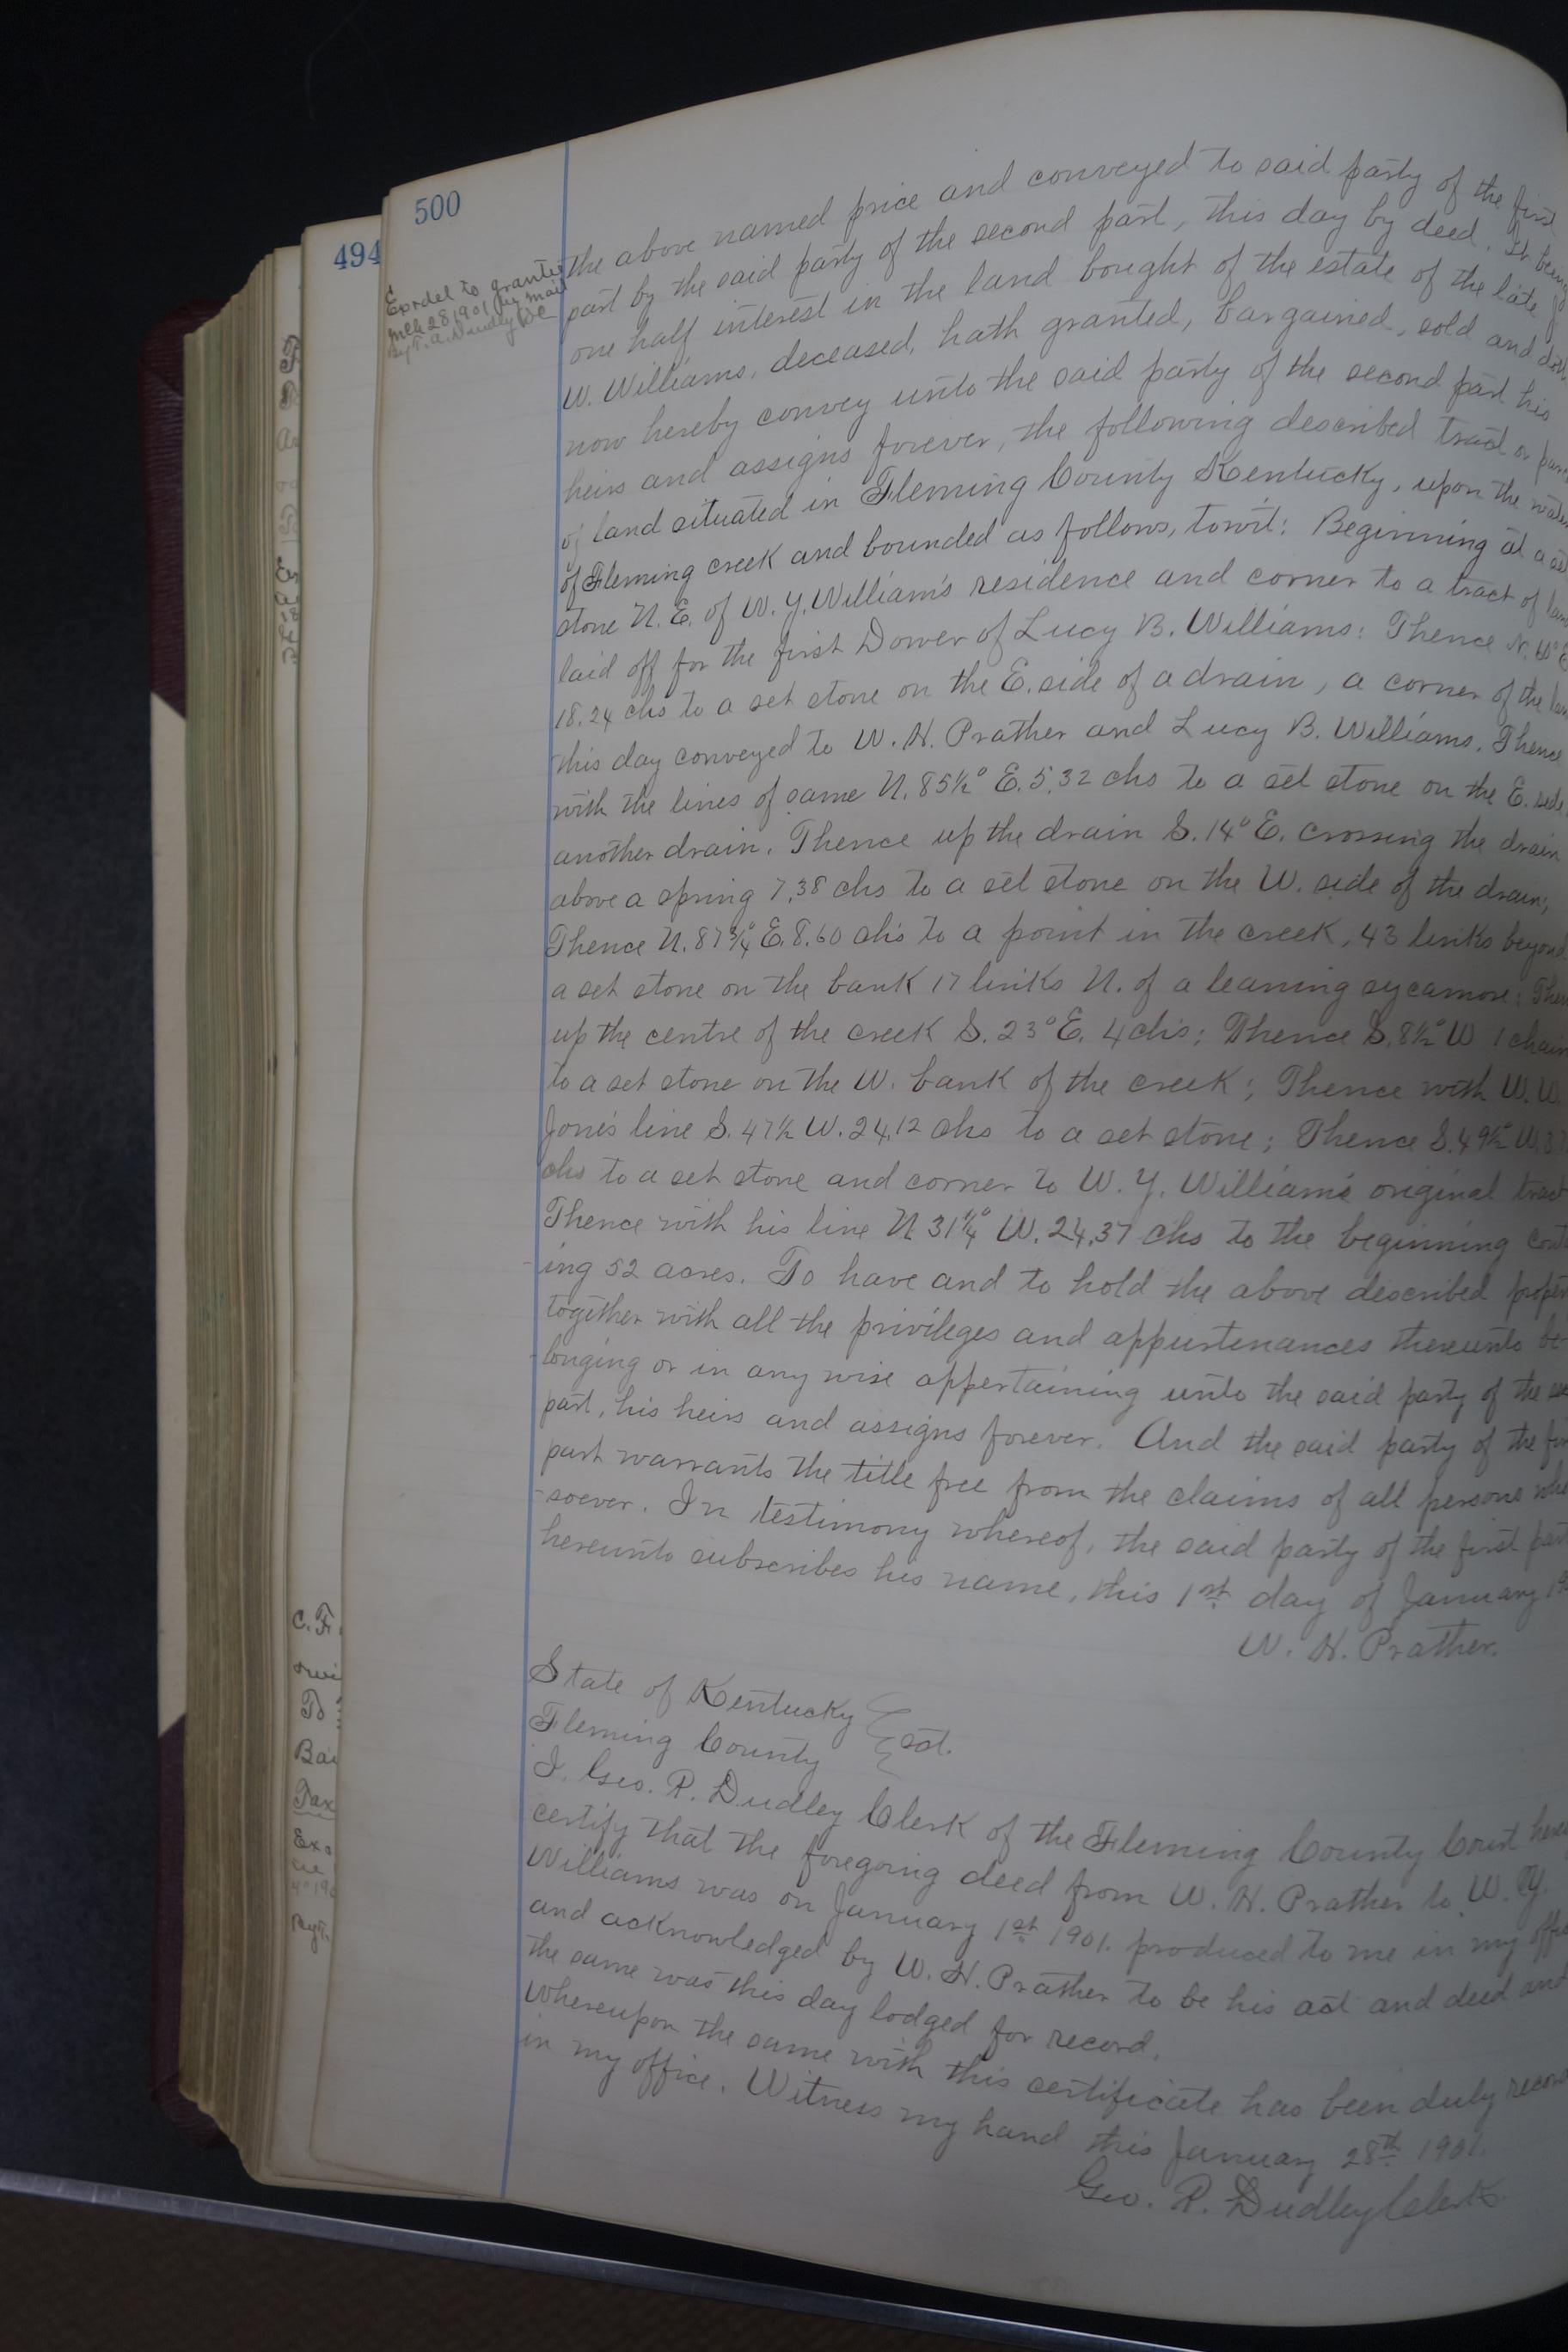 500
494
Ex&del to grantee
Mch 28 1901 by mail
By T. A. Dudley DC
the above named price and conveyed to said party of the first
part by the said party of the second part, this day by deed. It being
one half interest in the land bought of the estate of the late
W. Williams, deceased, hath granted, bargained, sold and doth
now hereby convey unto the said party of the second part his
heirs and assigns forever, the following described tract or
of land situated in Fleming County Kentucky, upon the
of Fleming creek and bounded as follows, towit: Beginning at a
stone N. E. of W. Y. William's residence and corner to a tract of
laid off for the first Dower of Lucy B. Williams: Thence N. 60° E
18.24 chs to a set stone on the E. side of a drain, a corner of the
this day conveyed to W. H. Prather and Lucy B. Williams. Thence
with the lines of same N. 85½° E. 5.32 chs to a set stone on the E. side
another drain. Thence up the drain S. 14° E. crossing the drain
above a spring 7.38 chs to a set stone on the W. side of the drain;
Thence N. 87¾° E. 8.60 chs to a point in the creek, 43 links beyond
a set stone on the bank 17 links N. of a leaning sycamore;
up the centre of the creek S. 23° E. 4 chs; Thence S. 8½° W 1 chain
to a set stone on the W. bank of the creek; Thence with W. W.
Jones line S. 47½ W. 24.12 chs to a set stone; Thence S. 49½° W.
chs to a set stone and corner to W. Y. William's original tract
Thence with his line N 31¼° W. 24.37 chs to the beginning
-ing 52 acres. To have and to hold the above described
together with all the privileges and appurtenances thereunto be
longing or in any wise appertaining unto the said party of the
part, his heirs and assigns forever. And the said party of the
part warrants the title free from the claims of all persons
-soever. In testimony whereof, the said party of the first part
hereunto subscribes his name, this 1st day of January
W. H. Prather.
State of Kentucky
Fleming County } sct.
I, Geo. R. Dudley Clerk of the Fleming County Court
certify that the foregoing deed from W. H. Prather to W. Y.
Williams was on January 1st 1901. produced to me in my
and acknowledged by W. H. Prather to be his act and deed and
the same was this day lodged for record.
Whereupon the same with this certificate has been duly
in my office. Witness my hand this January 28th 1901.
Geo. R. Dudley Clerk
C. F.
To
Bai
Tax